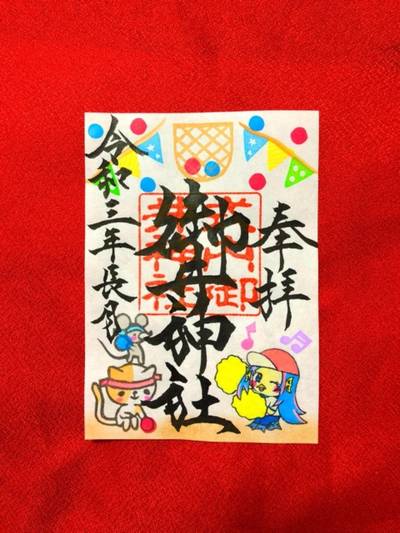 奉拝
御井神社
令和三年長月